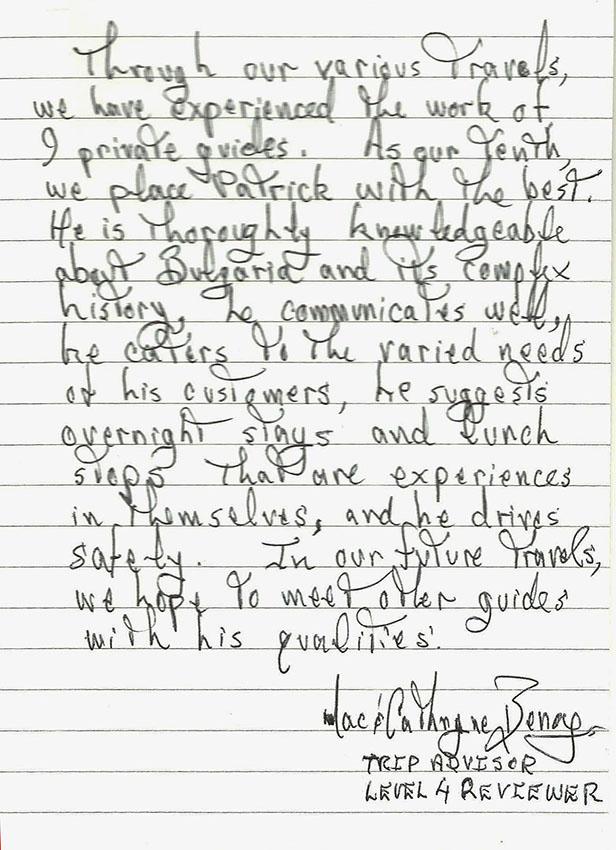 Through our various Travels,
we have experienced the work of
9 private guides. As our Tenth,
we place Patrick with the best.
He is thoroughly knowledgeable
about Bulgaria and its complex
history, he communicates well,
he caters to the varied needs
of his customers, he suggests
overnight stays and lunch
stops that are experiences
in themselves, and he drives
safely. In our future Travels,
we hope to meet other guides
with his qualities.
& Cathryne
TRIP ADVISOR
LEVEL 4 REVIEWER